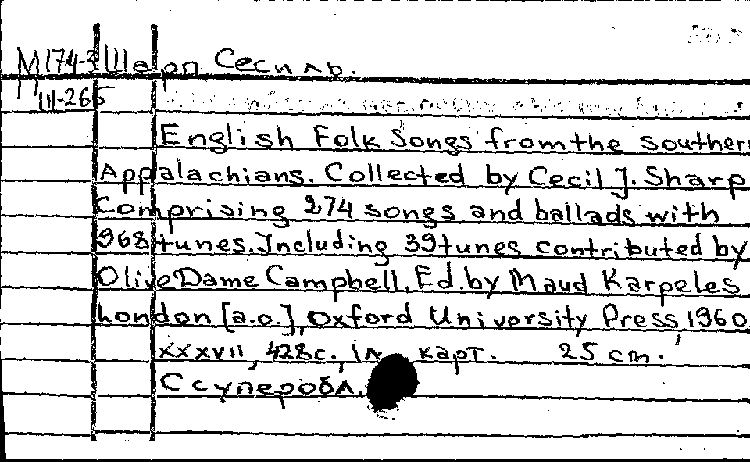 М174-3 Шарп Сесиль.
Ш-265
English Folk Songs from the southern
Appalachians. Collected by Cecil J. Sharp
Comprising 274 songs and ballads with
968 tunes. Including 39 tunes contributed by
Olive Dame Campbell. Ed. by Maud Karpeles
London [a.o.], Oxford University Press, 1960
XXXVII, 428 с., 1 л. карт. 25 cm.
С суперобл.